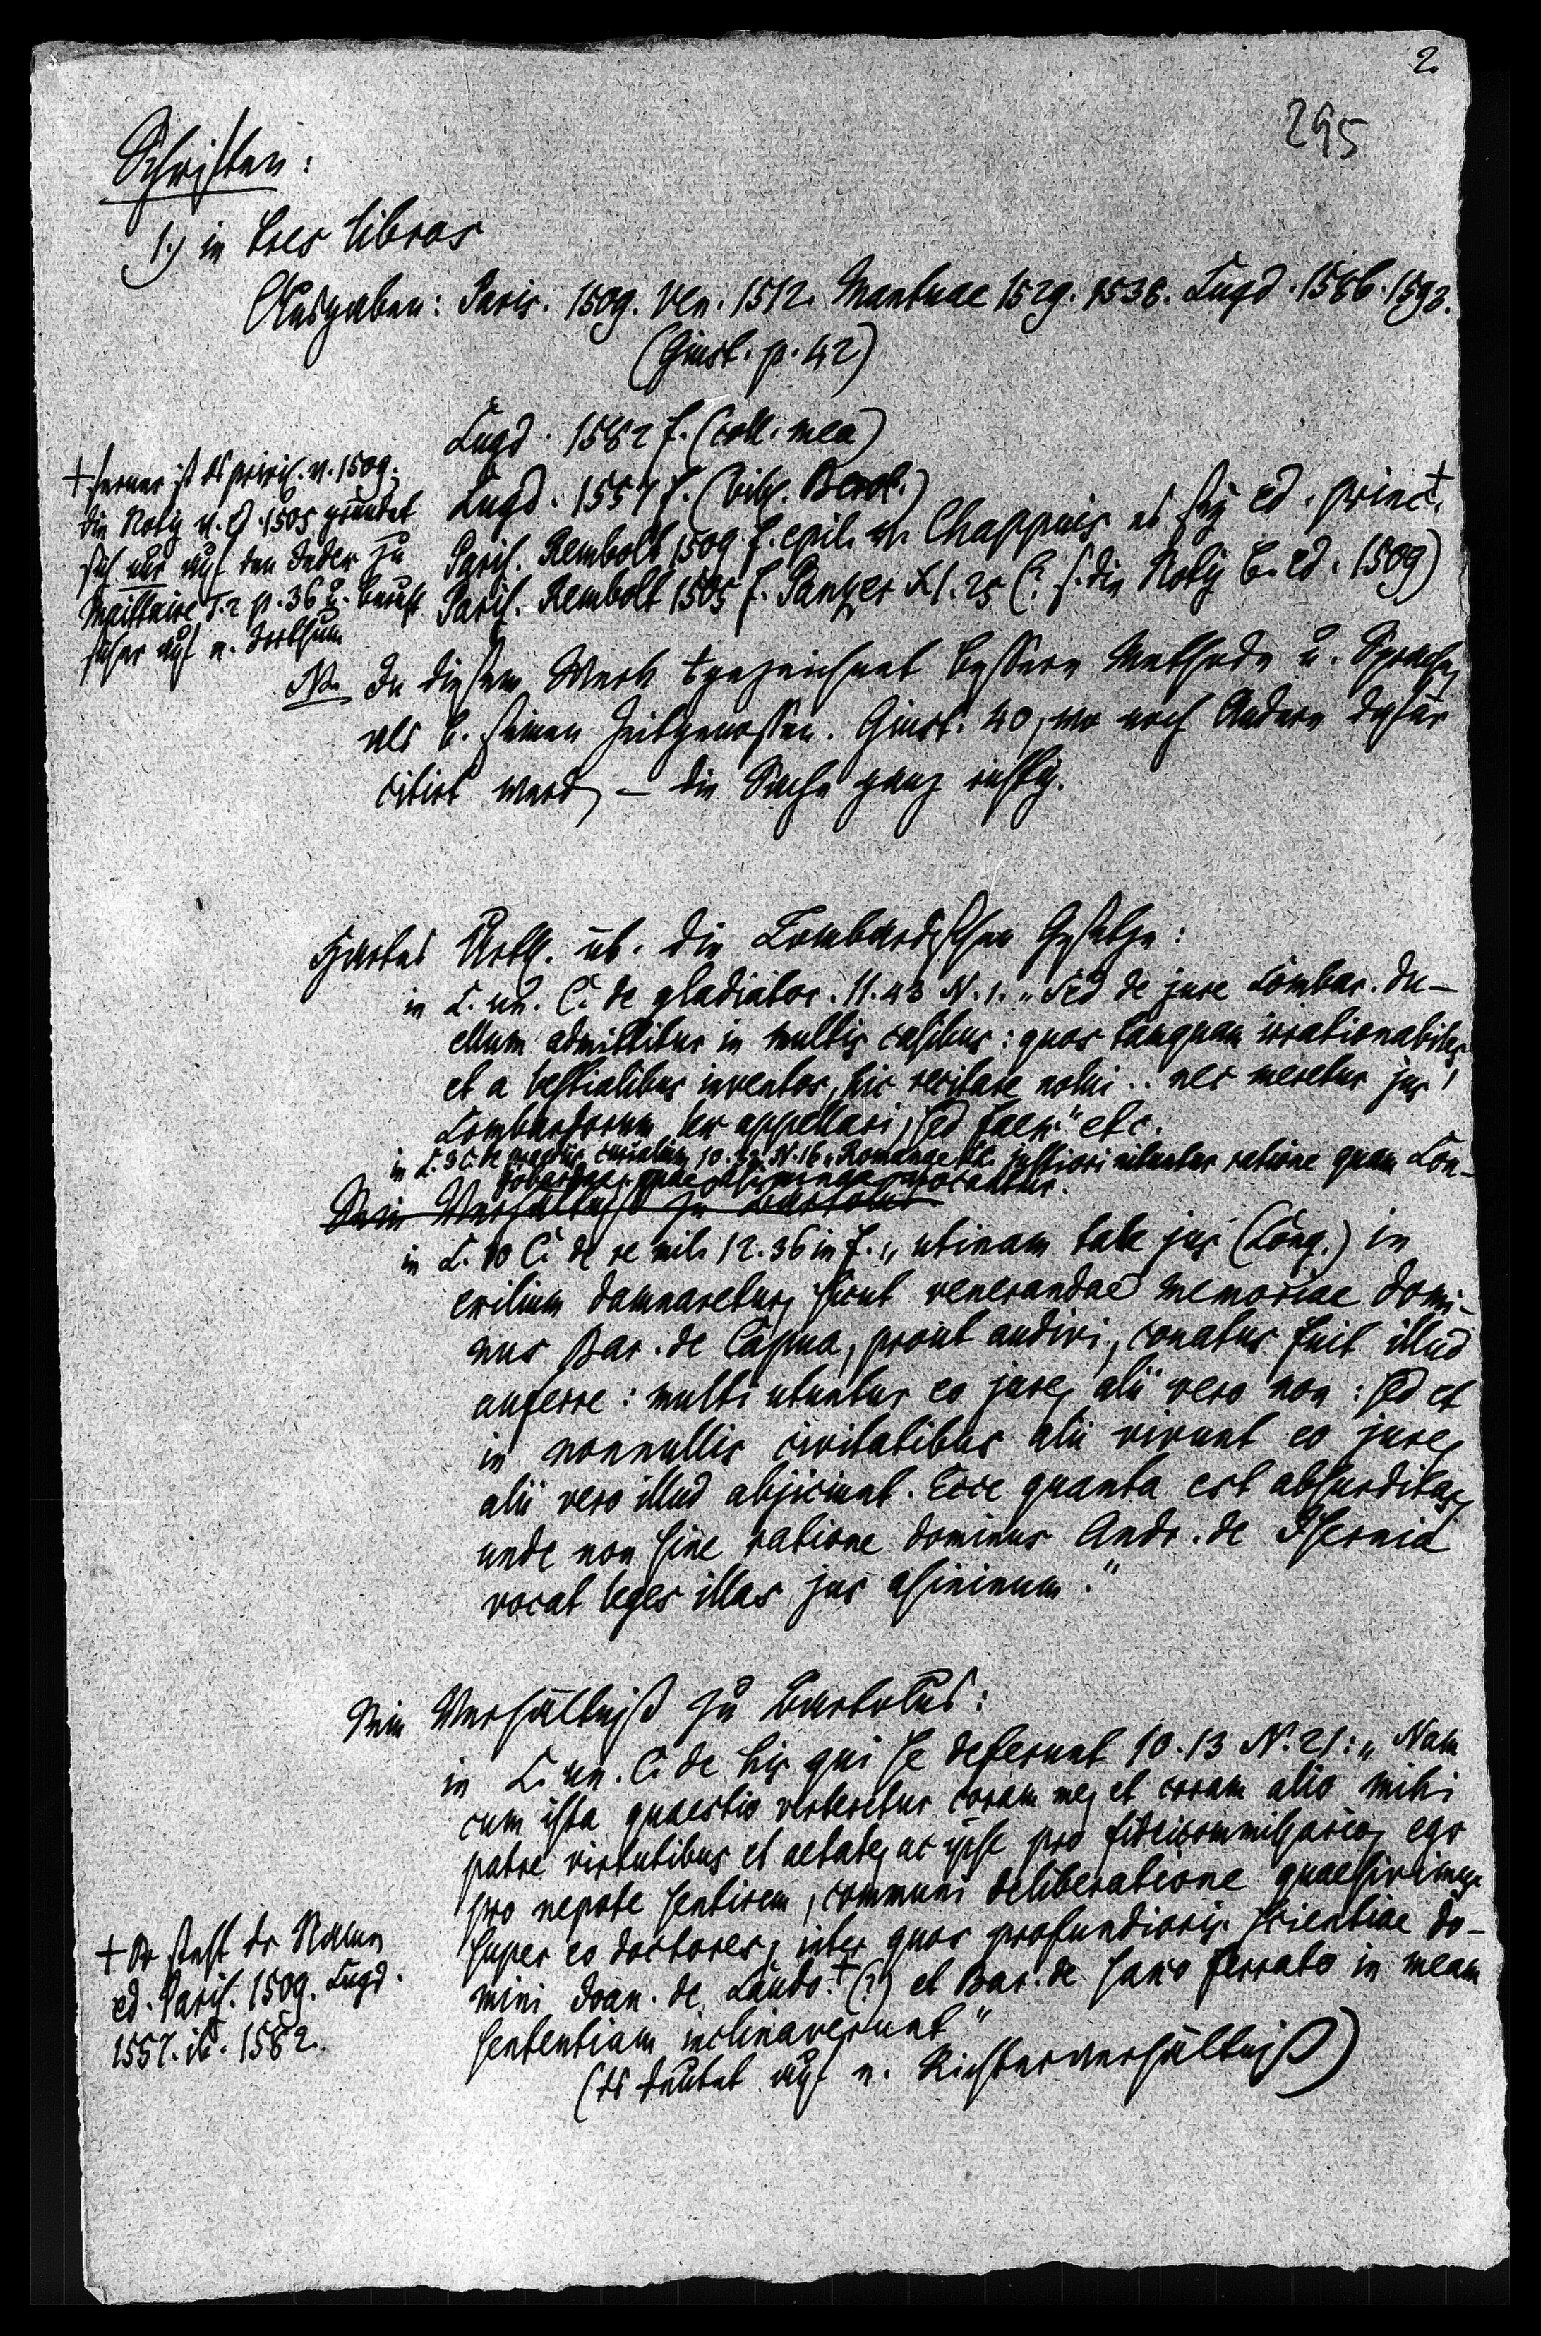 2.
295
Schriften:
1.) in tres libros
Ausgaben: Paris. 1509. Ven. 1512. Mantuae 1529. 1538. Lugd. 1586. 1592.
(Giust. p. 42)
Lugd. 1582 f. (coll. mea)
Lugd. 1557 f. (bibl. Berol.)
Paris. Rembolt 1509. f. epil. v. Chappuis es sey ed. princ.+
Paris. Rembolt 1505 f. Panzer XI. 25 (? s. die Notiz b. ed. 1509)
+ ferner ist privil. v. 1509.
die Notiz v. ed. 1505 gründet
sich nur auf den Index zu
Maittaire T. 2 p. 36 u. beruht
sicher auf e. Irrthum
NB. In diesem Werk ausgezeichnet bessere Methode u. Sprache,
als b. seinen Zeitgenossen. Giust. 40, wo noch Andere dafür
citirt werd. – die Sache ganz richtig.
Hartes Urth. üb. die Lombardischen Gesetze:
in L. un. C. de gladiator. 11. 43 N. 1. „Sed de jure Lombar. du-
ellum admittitur in multis casibus: quos tanquam irrationabiles
et a bestialibus inventos, hic recitare nolui .. nec meretur jus
Lombardorum lex appellari, sed faex" etc.
in L. 3 C. de N. 16 „Romanae justiori utuntur ratione quam Lon-
Sein Verhältniß zu Bartolus
in L. 10 C. de re mil. 12. 36 in f. „utinam tale jus (Long.) in
exilium damnaretur, sicut venerandae memoriae domi-
nus Bar. de Capua, prout audivi, conatus fuit illud
auferre: multi utuntur eo jure, alii vero non: sed et
in nonnullis civitatibus alii vivunt eo jure,
alii vero illud abjiciunt. Ecce quanta est absurditas,
unde non sine ratione dominus Andr. de Isernia
vocat leges illas jus asininum."
Sein Verhältniß zu Bartolus:
in L. un. C. de his qui se deferunt 10. 13 N. 21: „Nam
cum ista quaestio verteretur coram me, et coram alio mihi
patre virtutibus et aetate, ac ipse pro fideicommissario, ego
pro nepote sentirem, communi deliberatione quaesivimus
super eo doctores, inter quos profundioris scientiae do-
mini Joan. de Laudo.+ (?) et Bar. de saxo ferrato in meam
sententiam inclinaverunt"
(es deutet auf e. Richterverhältniß)
+ So steht der Name
ed. Paris. 1509. Lugd.
1557. it. 1582.